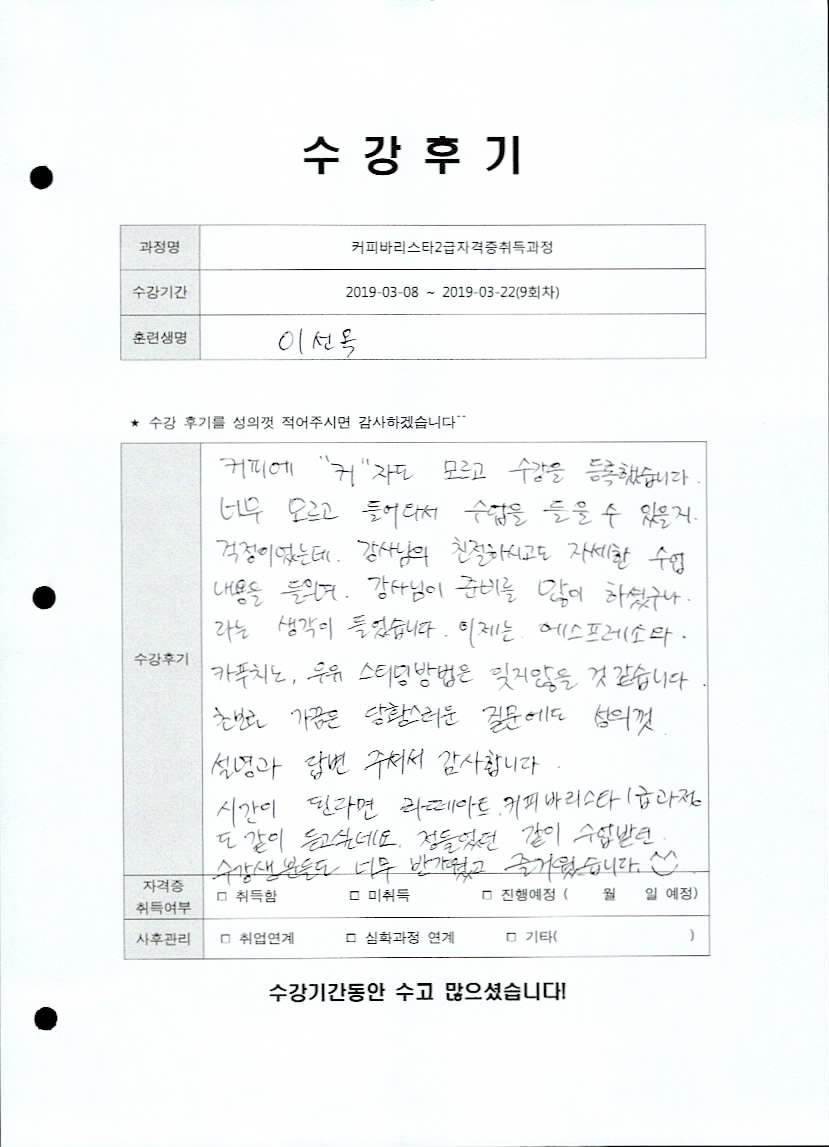 수 강 후 기
과정명 커피바리스타2급자격증취득과정
수강기간 2019-03-08 ~ 2019-03-22(9회차)
훈련생명 이선옥
★ 수강 후기를 성의껏 적어주시면 감사하겠습니다^^
수강후기
커피에 "커"자도 모르고 수강을 등록했습니다.
너무 모르고 들어와서 수업을 들을 수 있을지.
걱정이었는데. 강사님의 친절하시고도 자세한 수업
내용을 들으며. 강사님이 준비를 많이 하셨구나.
라는 생각이 들었습니다. 이제는 에스프레소와.
카푸치노, 우유 스티밍방법은 잊지않을 것 같습니다.
초반보 가끔은 당황스러운 질문에도 성의껏
설명과 답변 주셔서 감사합니다.
시간이 된다면 라떼아트.커피바리스타 1급과정
도 같이 듣고싶네요. 정들었던 같이 수업받던.
수강생분들도 너무 반가웠고 즐거웠습니다.
자격증 취득여부 □ 취득함 □ 미취득 □ 진행예정 ( 월 일 예정)
사후관리 □ 취업연계 □ 심화과정 연계 □ 기타( )
수강기간동안 수고 많으셨습니다!